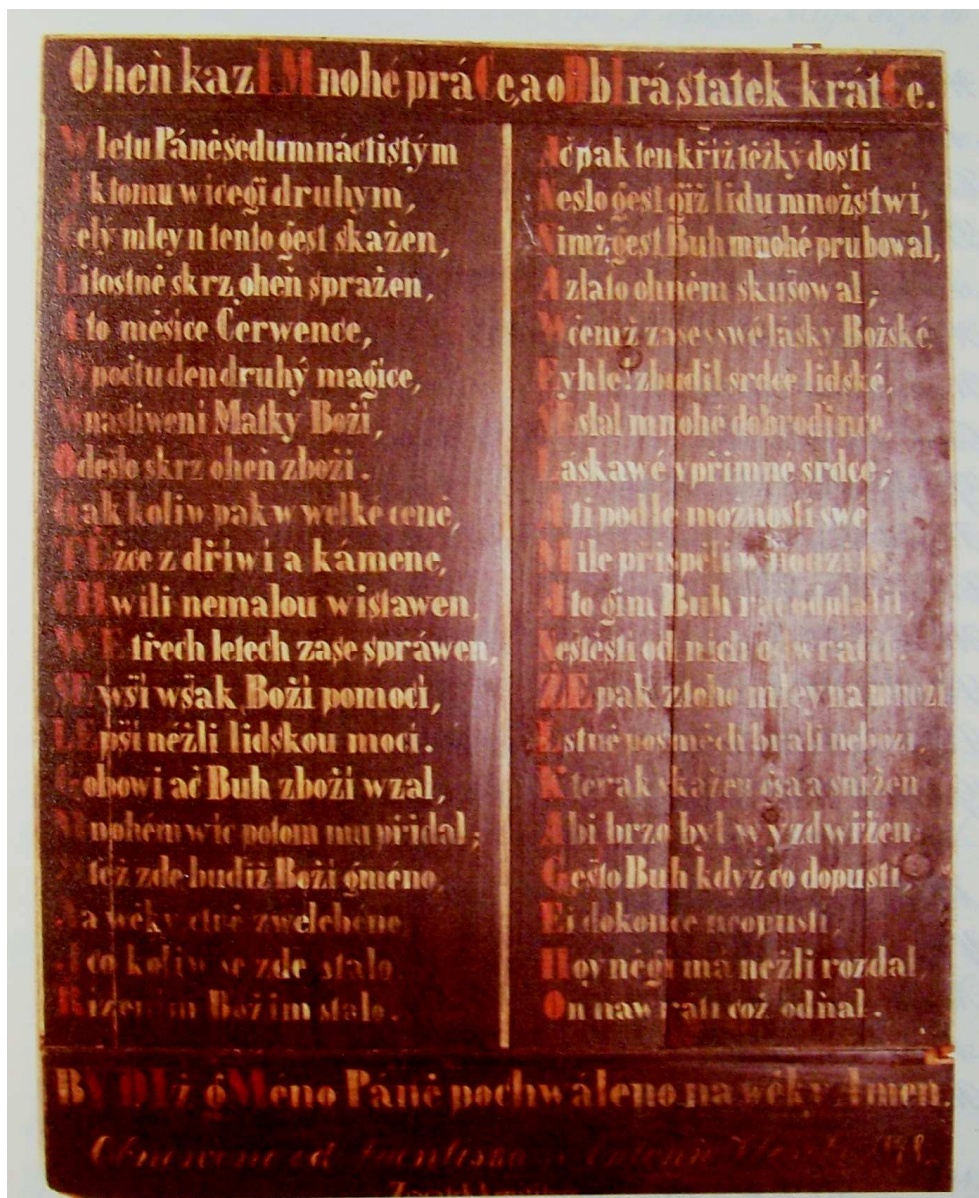 Oheň kazIMnohé práCe, a oDbIrá statek krátCe.
W letu Páně sedumnáctistým
k tomu wícegi druhym,
Celý mleyn tento gest skažen,
Lítostně skrz oheň spražen,
A to měsíce Čerwence,
W počtu den druhý magíce,
W nawštiwení Matky Boží,
Odešlo skrz oheň zboží.
Gakkoliw pak w welké ceně,
TĚžce z dříwí a kámene,
CHwíli nemalou wistawen,
WE třech letech zase spráwen,
SE wší wšak Boží pomocí,
LEpší něžli lidskou mocí.
Gobowi ač Buh zboží wzal,
Mnohém wíc potom mu přidal;
též zde budiž Boží gméno,
Na wěky ctně zwelebéne
co koliw se zde stalo
Řízením Božím stalo.
Ač pak ten kříž těžký dosti
Neslo gest giž lidu množstwí,
Nímž gest Buh mnohé prubowal,
A zlato ohněm skušowal;
W čemž zase swé lásky Božské,
Eyhle! zbudil srdce lidské,
slal mnohé dobrodince,
Láskawé vpřímné srdce;
A ti podle možnosti swé
Mile přispěli w nouzi té
A to gim Buh rač odplatit,
Neštěstí od nich odwrátit.
ŽE pak z toho mleyna mnozí
Lstně posměch brali nebozí,
Kterak skažen gsa a snížen
Abi brzo byl wyzdwižen.
Gešto Buh když co dopustí,
Ei dokonce neopustí,
Hoyněgi má nežli rozdal,
On nawrátí což odňal.
BVDIž gMéno Páně pochwáleno na wěky Amen.
Obnoweno od Frantisska 1848.